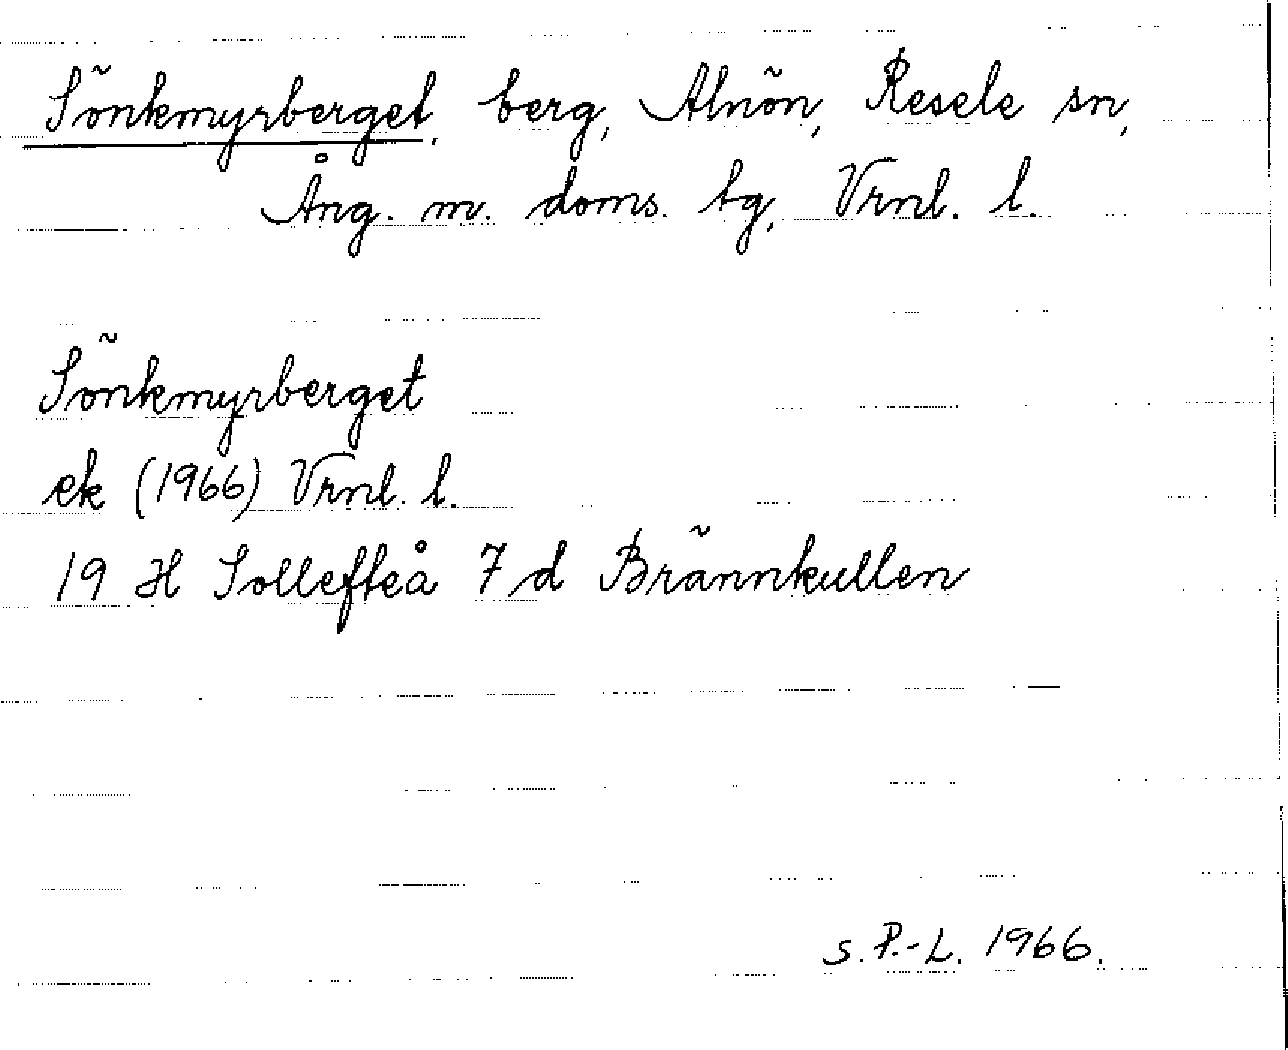 Sönkmyrberget, berg, Alnön, Resele sn,
Ång. m. doms. tg, Vrnl. l.
Sönkmyrberget
ek (1966) Vrnl. l.
19 H Sollefteå 7 d Brännkullen
S. P.-L. 1966.